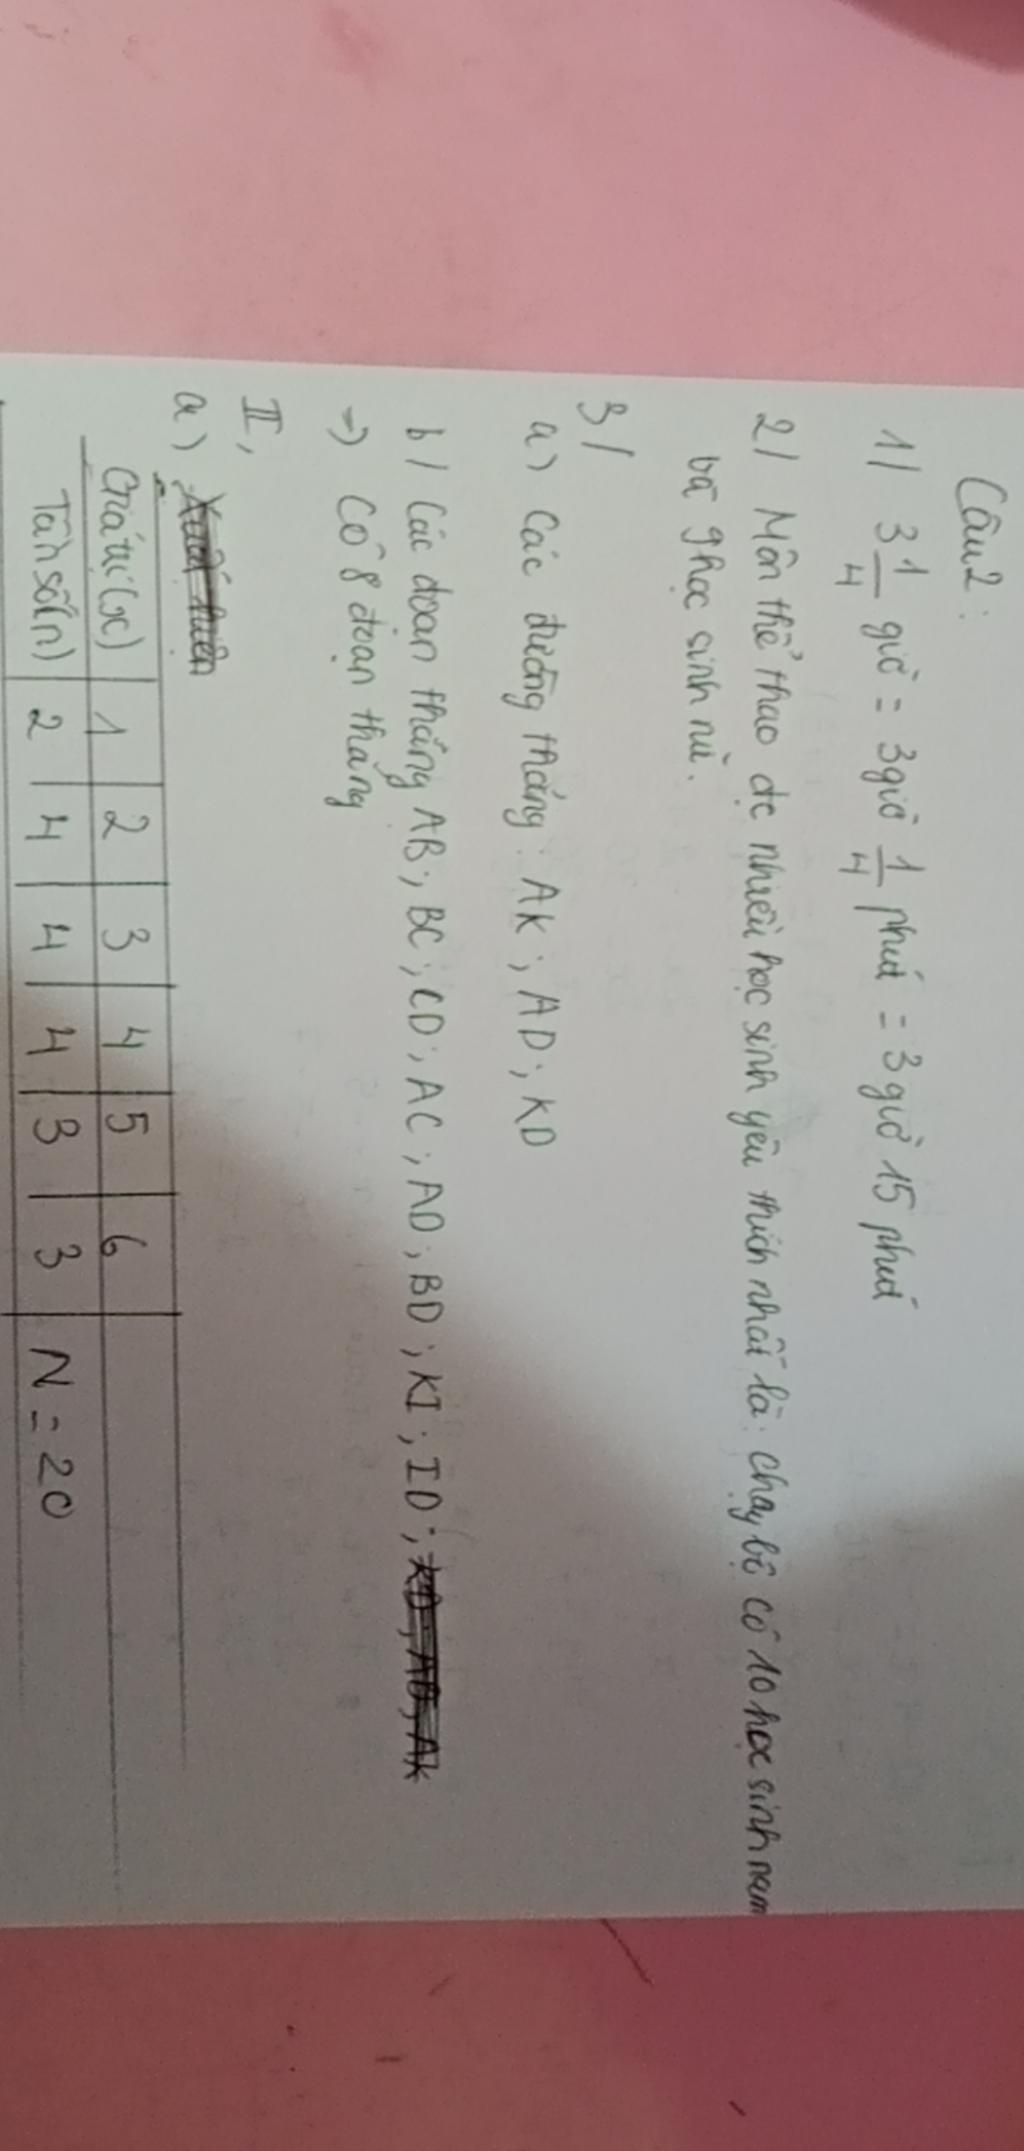 Câu 2:
1/ 3 1/4 giờ = 3 giờ 1/4 phút = 3 giờ 15 phút
2/ Môn thể thao đc nhiều học sinh yêu thích nhất là: chạy bộ có 10 học sinh nam
và 9 học sinh nữ.
3/
a) Các đường thẳng: AK; AD; KD
b/ Các đoạn thẳng AB; BC; CD; AC; AD; BD; KI; ID;
→) Có 8 đoạn thẳng
II,
a)
Giá trị (x) 1 2 3 4 5 6
Tần số (n) 2 4 4 4 3 3 N = 20